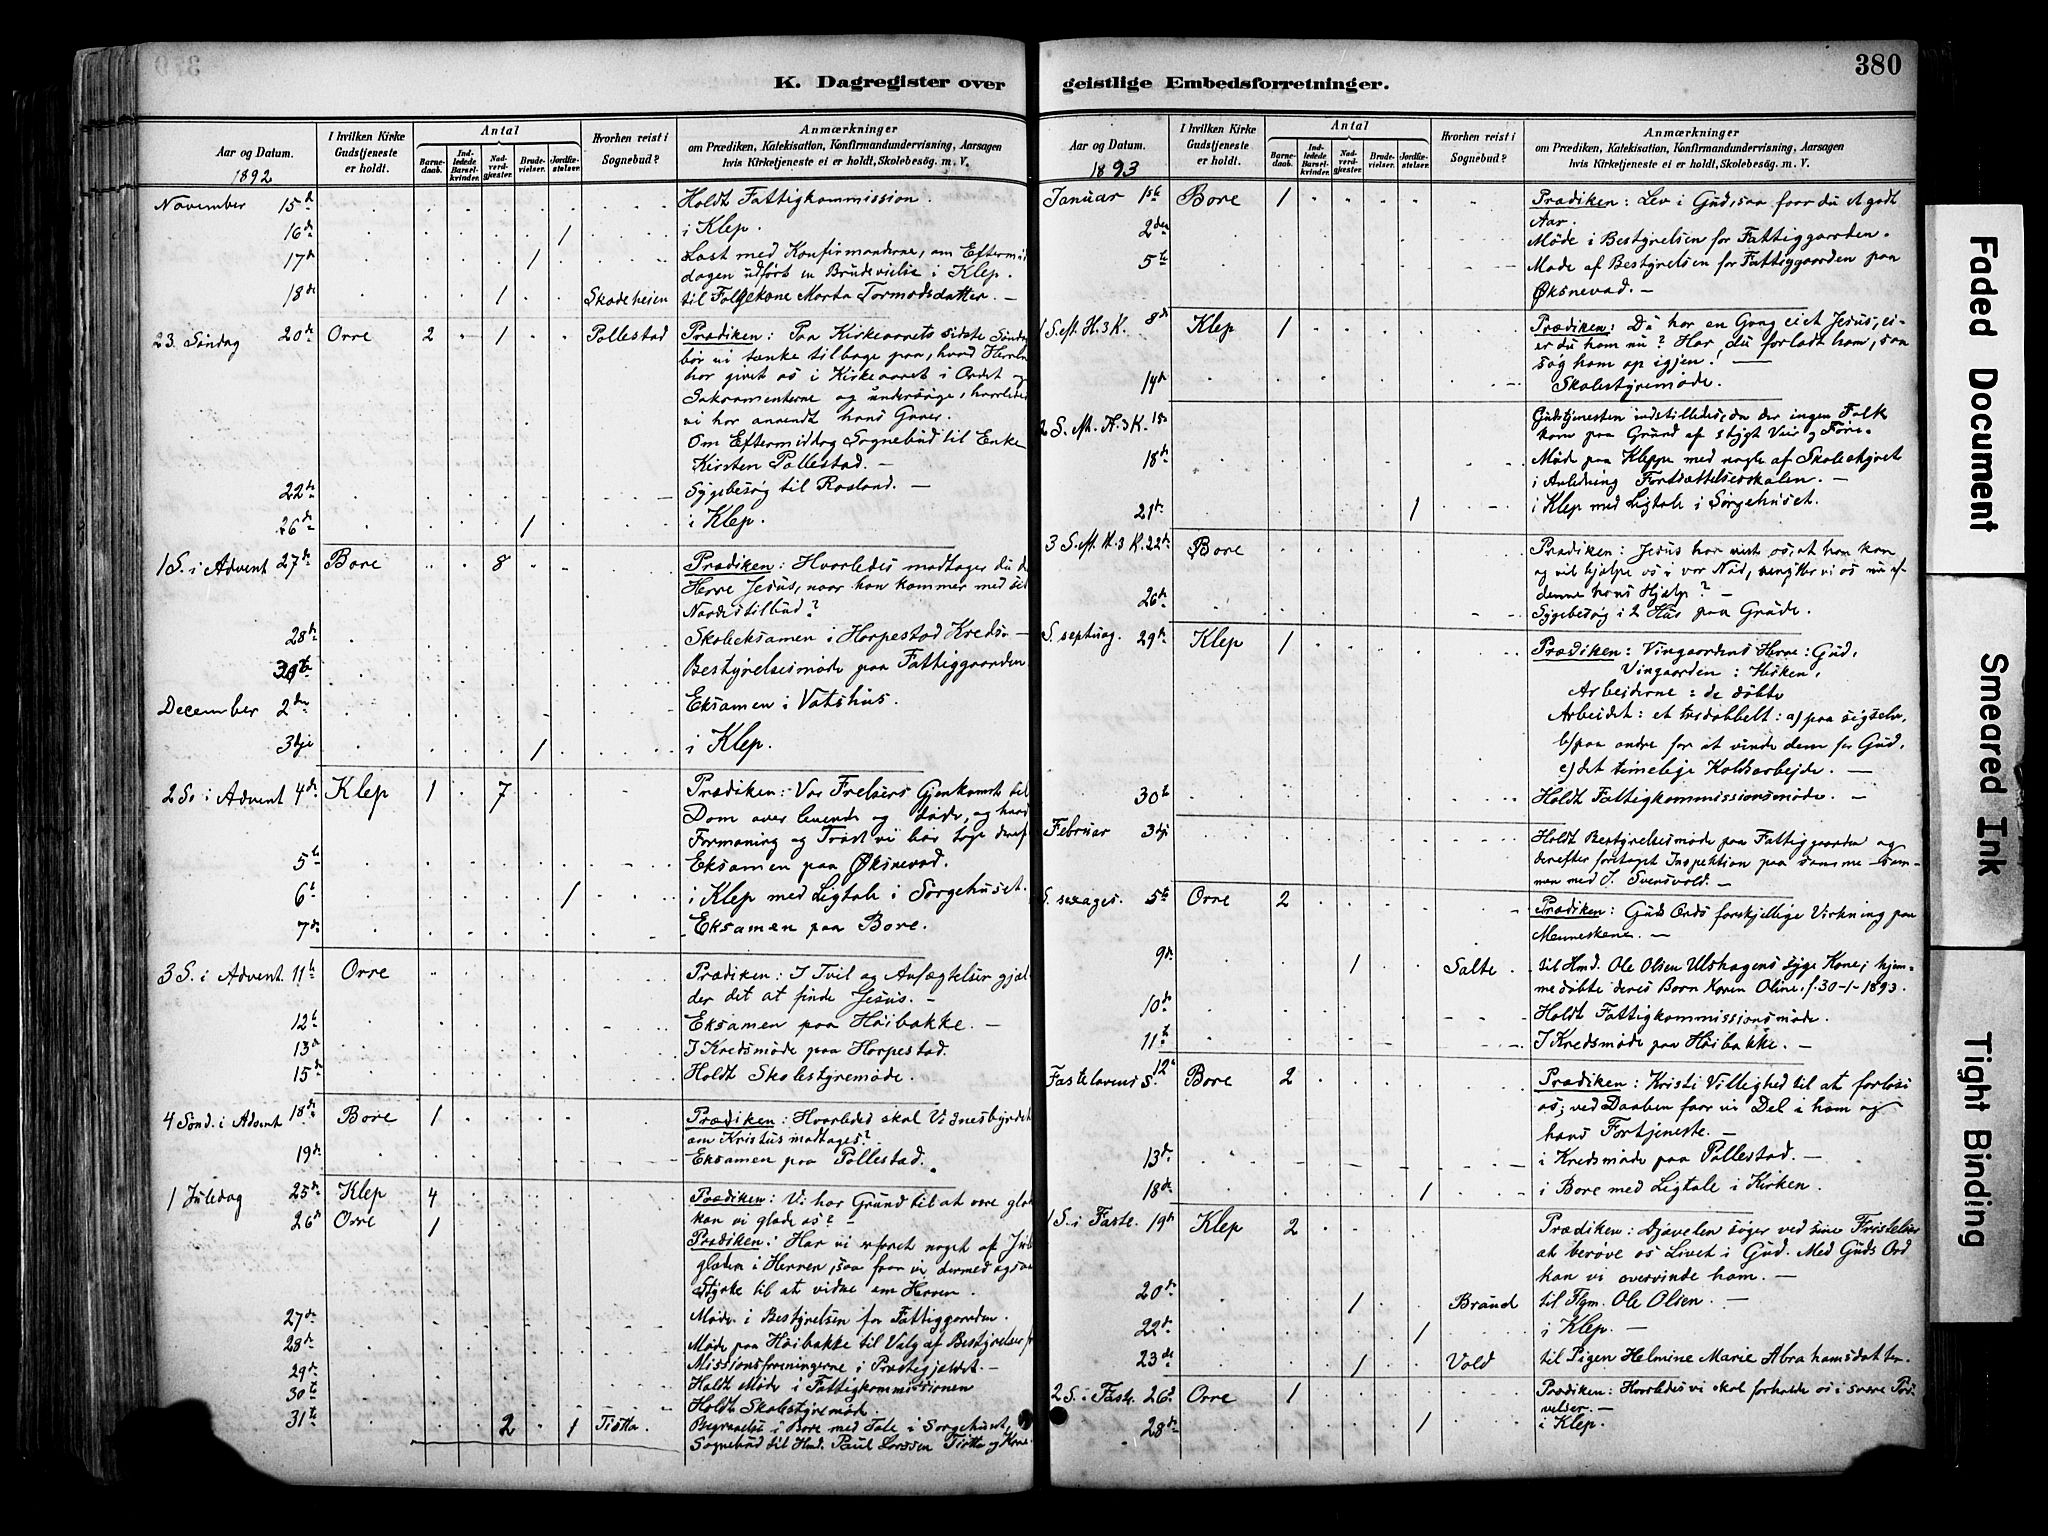 380
K. Dagregister over
geistlige Embedsforretninger.
Aar og Datum.
1892
I hvilken Kirke Gudstjeneste er holdt.
Antal
Barnedaab.
Indledede Barselkvinder.
Nadverdgjæster.
Brudevielser.
Jordfæstelser.
Hvorhen reist i Sognebud?
Anmærkninger
om Prædiken, Katekisation, Konfirmandundervisning, Aarsagen
hvis Kirketjeneste ei er holdt, Skolebesøg. m. V.
November 15de Holdt Fattigkommission.
16de 1 i Klep.
17de 1 Læst med Konfirmanderne, om Efterm
dagen udført en Brudevielse i Klep.
18de 1 Skadeheien til Følgekone Marta Tormodsdatter. —
23. Søndag 20de Orre 2 1 Pollestad Prædiken: Paa Kirkeaarets sidste Søndag
bør vi tænke tilbage paa, hvad Herren
har givet os i Kirkeaaret i Ordet og
Sakramenterne og undersøge, hvorledes
vi har anvendt hans Gaver.
Om Eftermiddag Sognebud til Enke
Kirsten Pollestad. —
22de Sygebesøg til Rosland. —
26de 1 i Klep.
1 S. i Advent 27de Bore 8 Prædiken: Hvorledes modtager du d
Herre Jesus, naar han kommer med sit
Naadestilbud?
28de Skoleeksamen i Horpestad Kreds. —
30te Bestyrelsesmøde paa Fattiggaarden
December 2den Eksamen i Vatshus.
3dje 1 i Klep.
2 S. i Advent 4de Klep 1 7 Prædiken: Vor Frelsers Gjenkomst til
Dom over levende og døde, og hvad
Formaning og Trøst vi bør tage deraf
5te Eksamen paa Øksnevad.
6te 1 i Klep med Ligtale i Sørgehuset.
7de Eksamen paa Bore.
3 S. i Advent 11te Orre Prædiken: I Tvil og Anfægtelser gjæl
der det at finde Jesus. —
12te Eksamen paa Høibakke. —
13de I Kredsmøde paa Horpestad.
15de Holdt Skolestyremøde.
4 Sønd. i Advent 18de Bore 1 Prædiken: Hvorledes skal Vidnesbyrdet
om Kristus modtages?
19de Eksamen paa Pollestad.
1 Juledag 25de Klep 4 Prædiken: Vi har Grund til at være glade
kan vi glæde os? —
26de Orre 1 Prædiken: Har vi erfaret noget af Jule
glæden i Herren, saa faar vi dermed ogsaa
Styrke til at vidne om Herren.
27de Møde i Bestyrelsen for Fattiggaarden.
28de Møde paa Høibakke til Valg af Bestyrelse for
Missionsforeningerne i Præstegjældet. —
29de Holdt Møde i Fattigkommissionen
30te Holdt Skolestyremøde.
31te 2 1 Tiøtta. Begravelse i Bore med Tale i Sørgehuset,
Sognebud til Hmd. Paul Larssen Tiøtta og Kone.
Aar og Datum.
1893
I hvilken Kirke Gudstjeneste er holdt.
Antal
Barnedaab.
Indledede Barselkvinder.
Nadverdgjæster.
Brudevielser.
Jordfæstelser.
Hvorhen reist i Sognebud?
Anmærkninger
om Prædiken, Katekisation, Konfirmandundervisning, Aarsagen
hvis Kirketjeneste ei er holdt, Skolebesøg. m. V.
Januar 1ste Bore 1 Prædiken: Lev i Gud, saa faar du et godt
Aar.
2den Møde i Bestyrelsen for Fattiggaarden.
5te Møde af Bestyrelsen for Fattiggaarden paa
Øksnevad. —
1 S. eft. H. 3 K. 8de Klep 1 Prædiken: Du har en Gang eiet Jesus, ei-
er du ham nu? Har du forladt ham, saa
søg ham op igjen! —
14de Skolestyremøde.
2 S. eft. H. 3 K. 15de Gudstjenesten indstilledes, da der ingen Folk
kom paa Grund af stygt Veir og Føre.
18de Møde paa Kleppe med nogle af Skolestyret
i Anledning Fortsættelsesskolen. —
21de 1 i Klep med Ligtale i Sørgehuset.
3 S. eft. H. 3 K. 22de Bore Prædiken: Jesus har vist os, at han kan
og vil hjælpe os i vor Nød, benytter vi os nu af
denne hans Hjælp? —
26de Sygebesøg i 2 Hus paa Grude.
S. septuag. 29de Klep 1 Prædiken: Vingaardens Herre: Gud,
Vingaarden: Kirken,
Arbeiderne: de døbte
Arbeidet: et tredobbelt: a) paa sig selv,
b) paa andre for at vinde dem for Gud,
c) det timelige Kaldsarbejde. —
30te Holdt Fattigkommissionsmøde. —
Februar 3dje Holdt Bestyrelsesmøde paa Fattiggaarden og
derefter foretaget Inspektion paa samme sam-
men med J. Svensvold. —
S. sexages. 5te Orre 2 Prædiken: Guds Ords forskjellige Virkning paa
Menneskene. —
9de 1 Salte til Hmd. Ole Olsen Ulshagens syge Kone; hjem-
medøbte deres Barn Karen Oline, f. 30-1-1893.
10de Holdt Fattigkommissionsmøde.
11te I Kredsmøde paa Høibakke. —
Fastelavens S. 12te Bore 2 Prædiken: Kristi Villighed til at forløse
os; ved Daaben faar vi Del i ham og
hans Fortjeneste. —
13de i Kredsmøde paa Pollestad. —
18de 1 i Bore med Ligtale i Kirken.
1 S. i Faste. 19de Klep 2 Prædiken: Djævelen søger ved sine Fristelser
at berøve os Livet i Gud. Med Guds Ord
kan vi overvinde ham. —
20de 1 Braud til Flgm. Ole Olsen. —
22de 1 i Klep. —
23de 1 Vold til Pigen Helmine Marie Abrahamsdatter.
2 S. i Faste. 26de Orre 1 Prædiken: Hvorledes vi skal forholde os i svære Prø-
velser. —
28de 1 i Klep.
Faded Document
Smeared Ink
Tight Binding